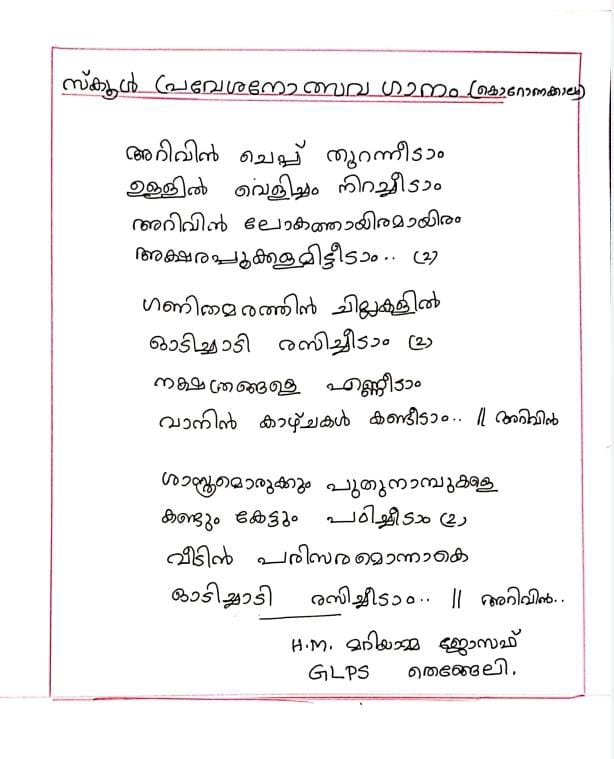 സ്കൂൾ പ്രവേശനോത്സവ ഗാനം (കൊറോണക്കാലം)
അറിവിൻ ചെപ്പ് തുറന്നീടാം
ഉള്ളിൽ വെളിച്ചം നിറച്ചീടാം
അറിവിൻ ലോകത്തായിരമായിരം
അക്ഷരപ്പൂക്കളമിട്ടീടാം.. (2)
ഗണിതമരത്തിൻ ചില്ലകളിൽ
ഓടിച്ചാടി രസിച്ചീടാം (2)
നക്ഷത്രങ്ങളെ എണ്ണീടാം
വാനിൻ കാഴ്ചകൾ കണ്ടീടാം.. || അറിവിൻ
ശാസ്ത്രമൊരുക്കും പുതുനാമ്പുകളെ
കണ്ടും കേട്ടും പഠിച്ചീടാം (2)
വീടിൻ പരിസരമൊന്നാകെ
ഓടിച്ചാടി രസിച്ചീടാം.. || അറിവിൻ..
H.M. മറിയാമ്മ ജോസഫ്
GLPS തെങ്ങേലി.